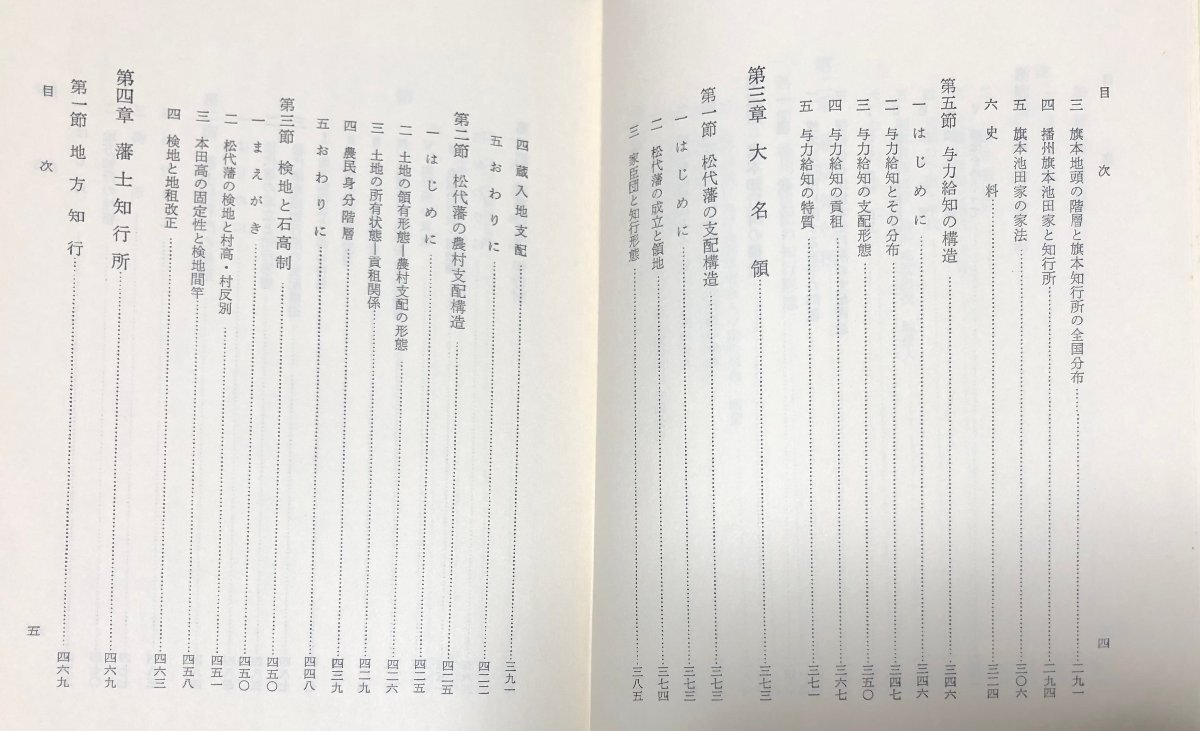 目次
三 旗本地頭の階層と旗本知行所の全国分布……二九一
四 播州旗本池田家と知行所……二九四
五 旗本池田家の家法……三〇六
六 史料……三二四
第五節 与力給知の構造……三四六
一 はじめに……三四六
二 与力給知とその分布……三四七
三 与力給知の支配形態……三五〇
四 与力給知の貢租……三六七
五 与力給知の特質……三七一
第三章 大名領……三七三
第一節 松代藩の支配構造……三七三
一 はじめに……三七三
二 松代藩の成立と領地……三七四
三 家臣団と知行形態……三八五
四
四 蔵入地支配……三九一
五 おわりに……四二二
第二節 松代藩の農村支配構造……四二五
一 はじめに……四二五
二 土地の領有形態―農村支配の形態……四二六
三 土地の所有状態―貢租関係……四二九
四 農民身分階層……四三九
五 おわりに……四四八
第三節 検地と石高制……四五〇
一 まえがき……四五〇
二 松代藩の検地と村高・村反別……四五一
三 本田高の固定性と検地間竿……四五八
四 検地と地租改正……四六三
第四章 藩士知行所……四六九
第一節 地方知行……四六九
目次
五